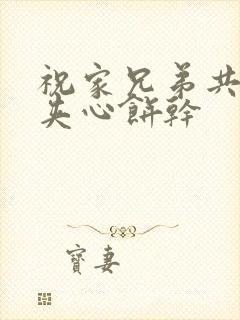 祝家兄弟共
夹心餅幹
寶妻